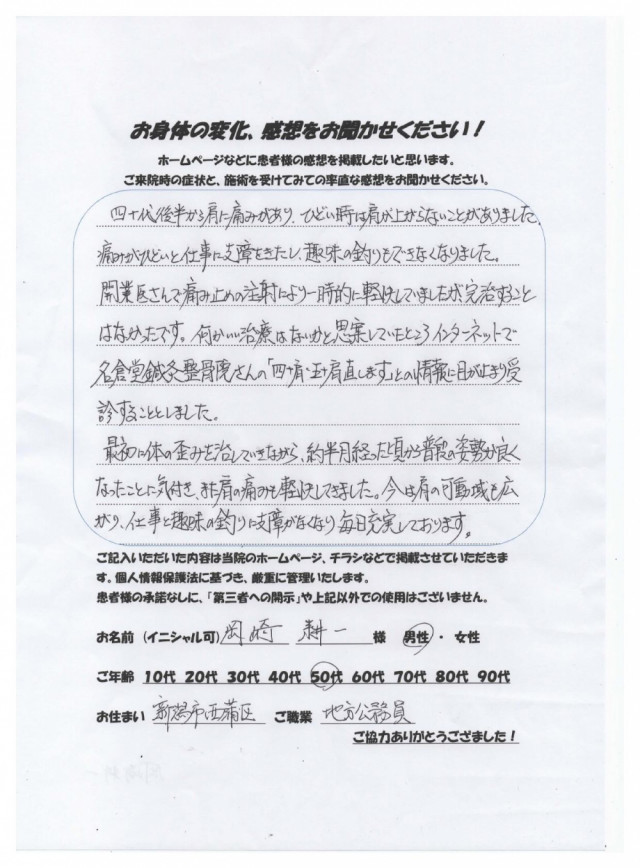 お身体の変化、感想をお聞かせください！
ホームページなどに患者様の感想を掲載したいと思います。
ご来院時の症状と、施術を受けてみての率直な感想をお聞かせください。
四十代後半から肩に痛みがあり、ひどい時は肩が上がらないことがありました。
痛みがひどいと仕事に支障をきたし、趣味の釣りもできなくなりました。
開業医さんで痛み止めの注射により一時的に軽快していましたが、完治すること
はなかったです。何かいい治療はないかと思案していたところインターネットで
名倉堂鍼灸整骨院さんの「四十肩・五十肩直します」との情報に目が止まり受
診することとしました。
最初に体の歪みを治していきながら、約半月経った頃から普段の姿勢が良く
なったことに気付き、また肩の痛みも軽快してきました。今は肩の可動域も広
がり、仕事と趣味の釣りに支障がなくなり毎日充実しております。
ご記入いただいた内容は当院のホームページ、チラシなどで掲載させていただきま
す。個人情報保護法に基づき、厳重に管理いたします。
患者様の承諾なしに、「第三者への開示」や上記以外での使用はございません。
お名前（イニシャル可） 岡崎 耕一 様 男性・女性
ご年齢 10代 20代 30代 40代 50代 60代 70代 80代 90代
お住まい 新潟市西蒲区 ご職業 地方公務員
ご協力ありがとうござました！